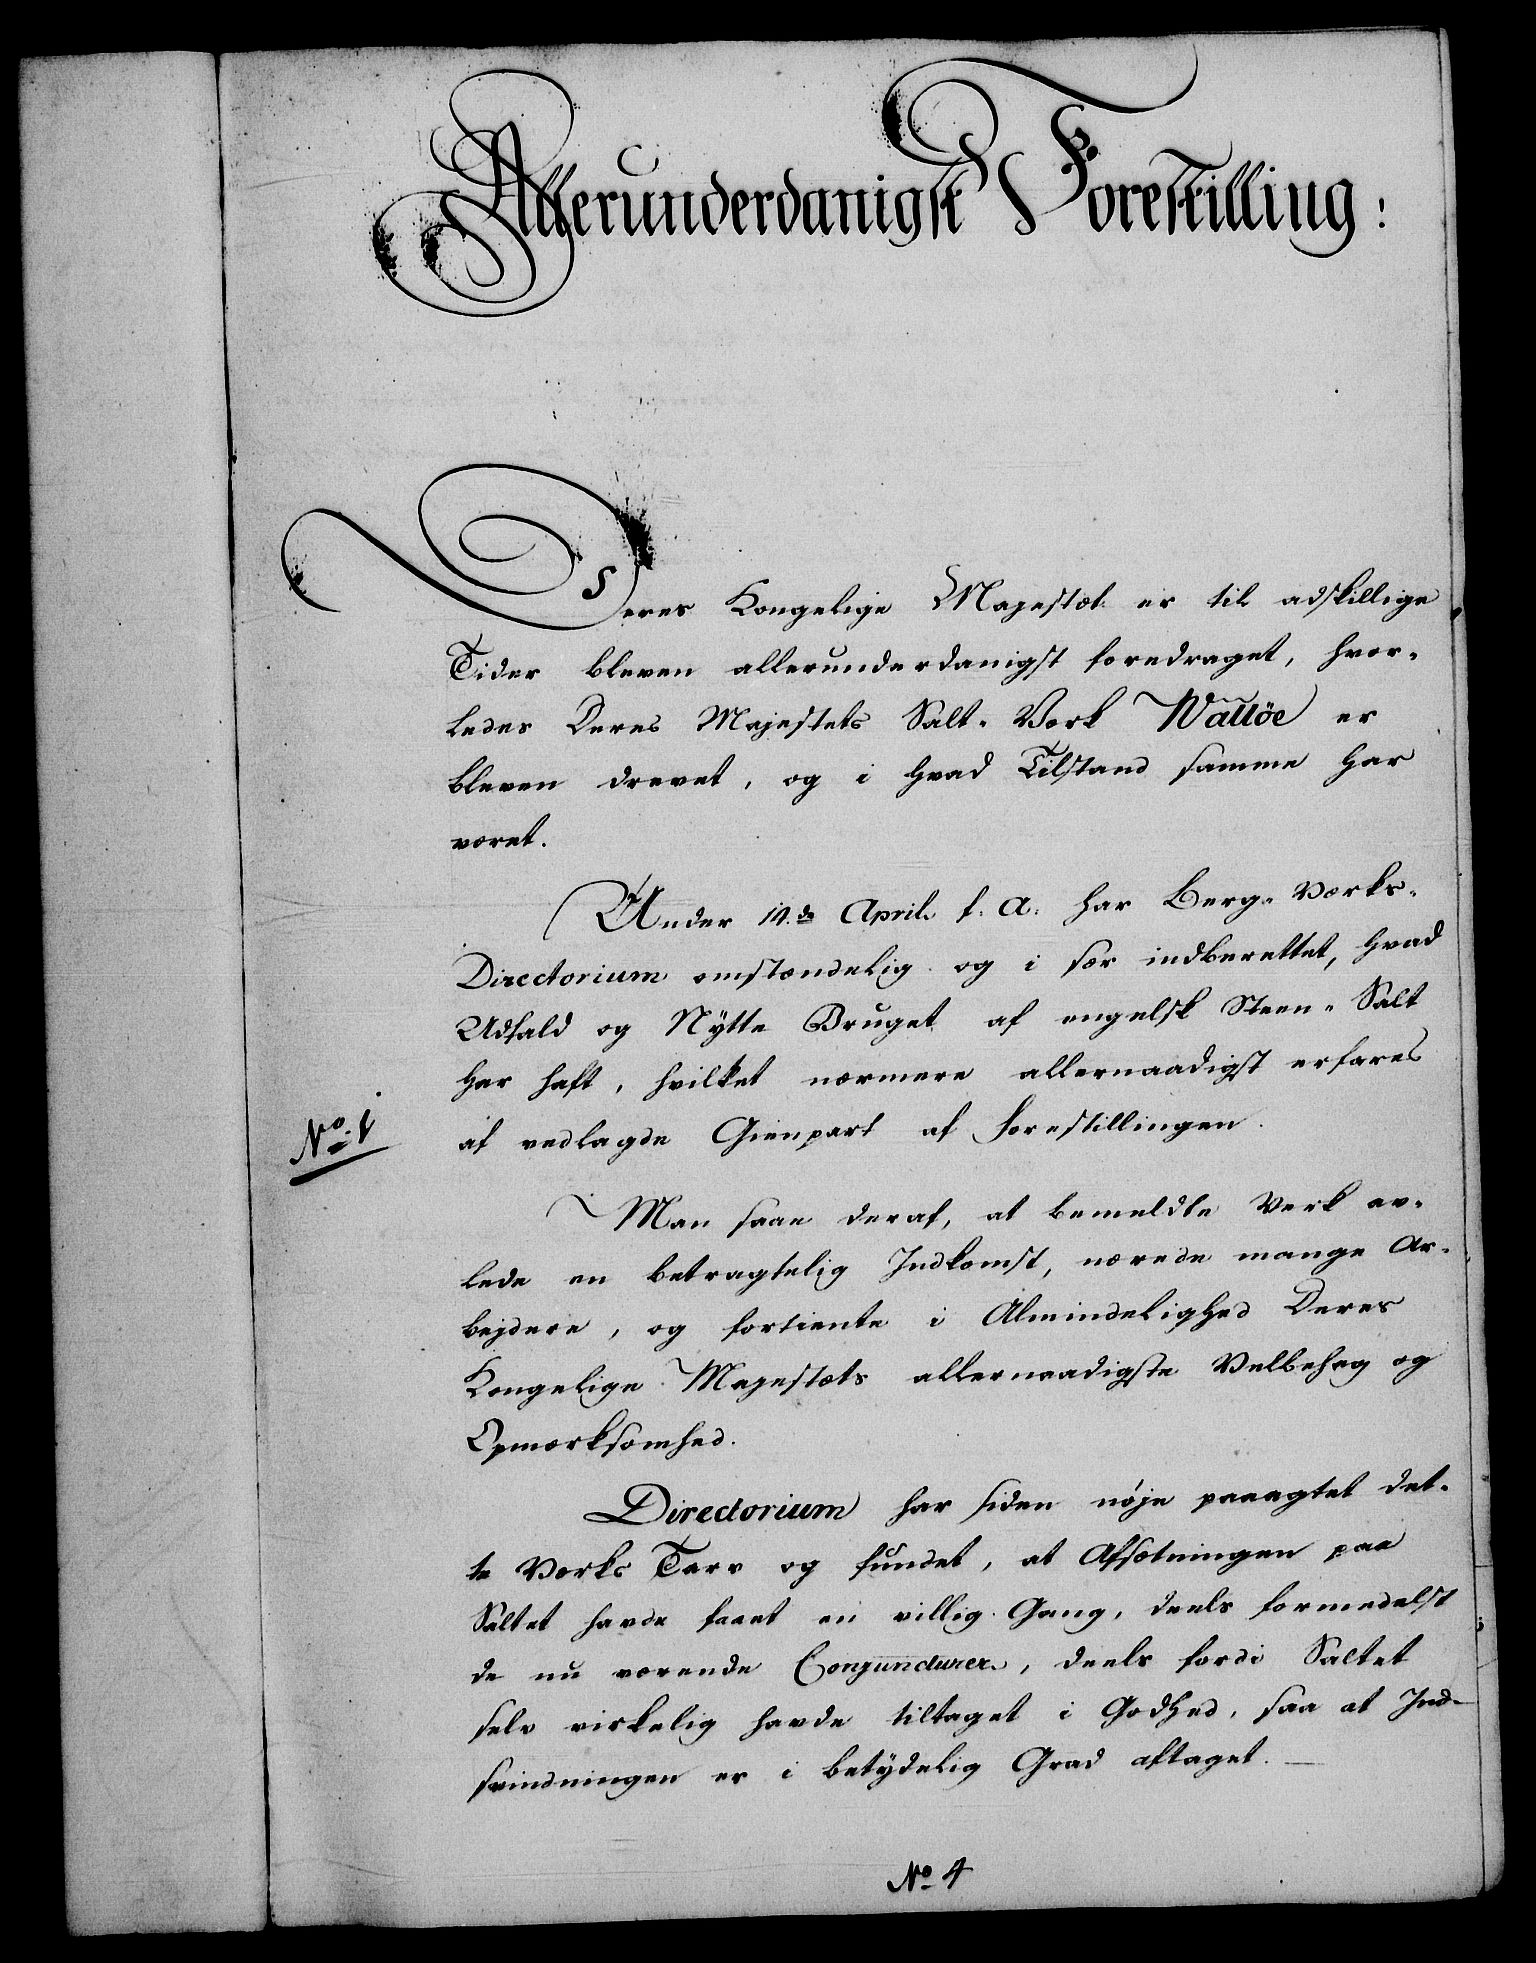 Allerunderdanigst Forestilling:
Deres Kongelige Majestæt er til adskillige
Tider bleven allerunderdanigst foredraget, hvor-
ledes Deres Majestets Salt-Værk Walløe er
bleven drevet, og i hvad Tilstand samme har
været.
Under 14.de April f. A. har Berg-Værks-
Directorium omstændelig og i sær indberettet, hvad
Udfald og Nytte Bruget af engelsk Steen-Salt
har haft, hvilket nærmere allernaadigst erfares
No. 1
af vedlagde Gienpart af Forestillingen.
Man saae deraf, at bemeldte Verk av-
lede en betragtelig Indkomst, nærede mange Ar-
bejdere, og fortiente i Almindelighed Deres
Kongelige Majestæts allernaadigste Velbehag og
Opmærksomhed.
Directorium har siden nøje paaagtet det-
te Værks Tarv og fundet, at Afsætningen paa
Saltet havde faaet en villig Gang, deels formedelst
de nu værende Conjuncturer, deels fordi Saltet
selv virkelig havde tiltaget i Godhed, saa at Ind-
svindningen er i betydelig Grad aftaget.
No 4